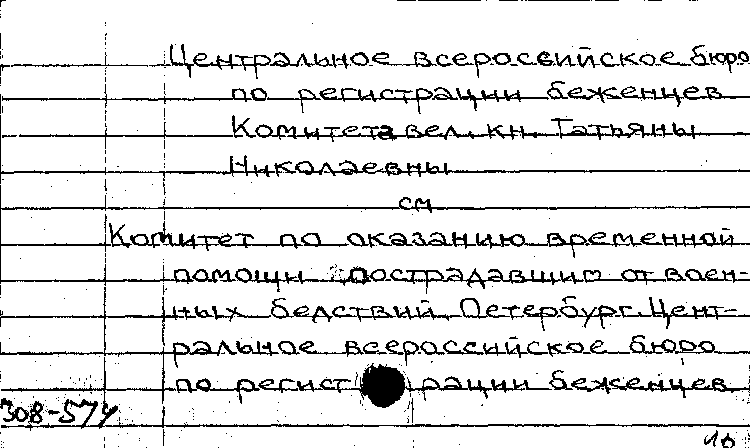 Центральное всероссийское бюро
по регистрации беженцев
Комитета вел. кн. Татьяны
Николаевны
см
Комитет по оказанию временной
помощи пострадавшим от воен-
ных бедствий. Петербург. Цент-
ральное всероссийское бюро
по регистрации беженцев
308-574